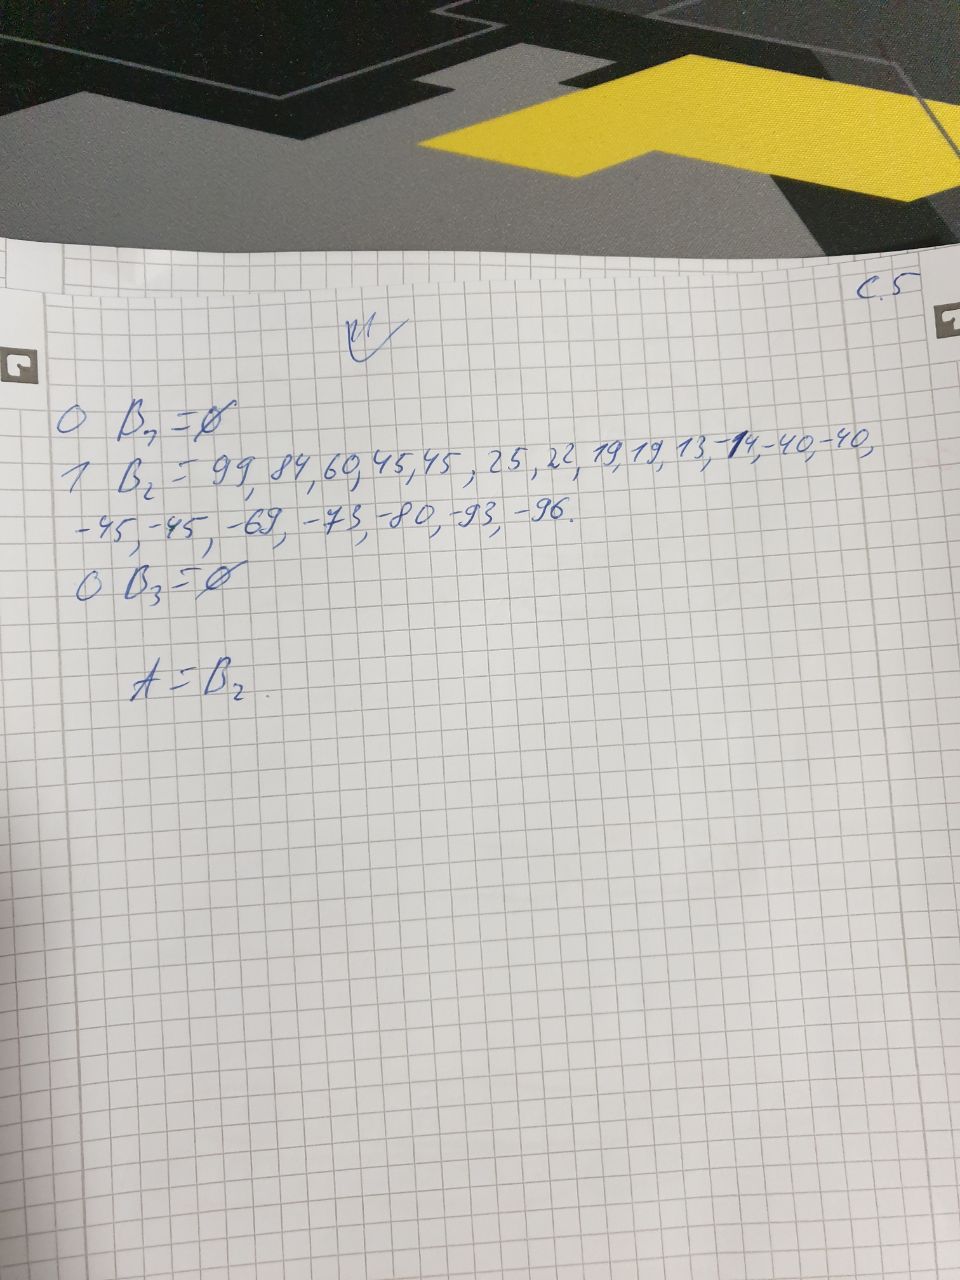 с. 5
0 B₁ = ∅
1 B₂ = 99, 84, 60, 45, 45, 25, 22, 19, 19, 13, -14, -40, -40,
-45, -45, -69, -73, -80, -93, -96.
0 B₃ = ∅
A = B₂.